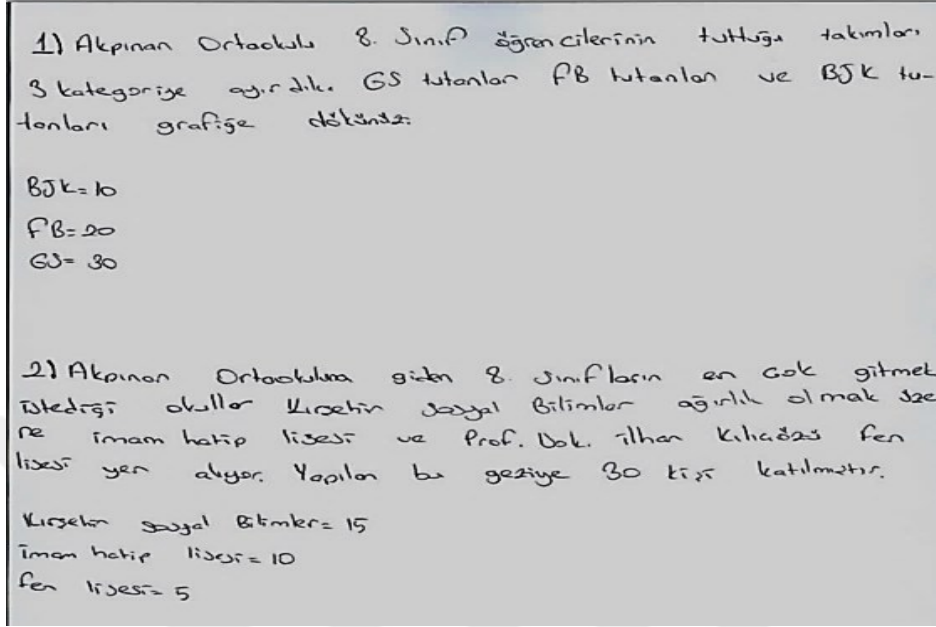 1) Akpınar Ortaokulu 8. Sınıf öğrencilerinin tuttuğu takımları
3 kategoriye ayırdık. GS tutanlar FB tutanlar ve BJK tu-
tanları grafiğe dökünüz.
BJK=10
FB=20
GS=30
2) Akpınar Ortaokuluna giden 8. sınıfların en çok gitmek
istediği okullar Kırşehir Sosyal Bilimler ağırlık olmak üze
re imam hatip lisesi ve Prof. Dok. ilhan Kılıçözü fen
lisesi yer alıyor. Yapılan bu geziye 30 kişi katılmıştır.
Kırşehir sosyal Bilimler=15
imam hatip lisesi=10
fen lisesi=5